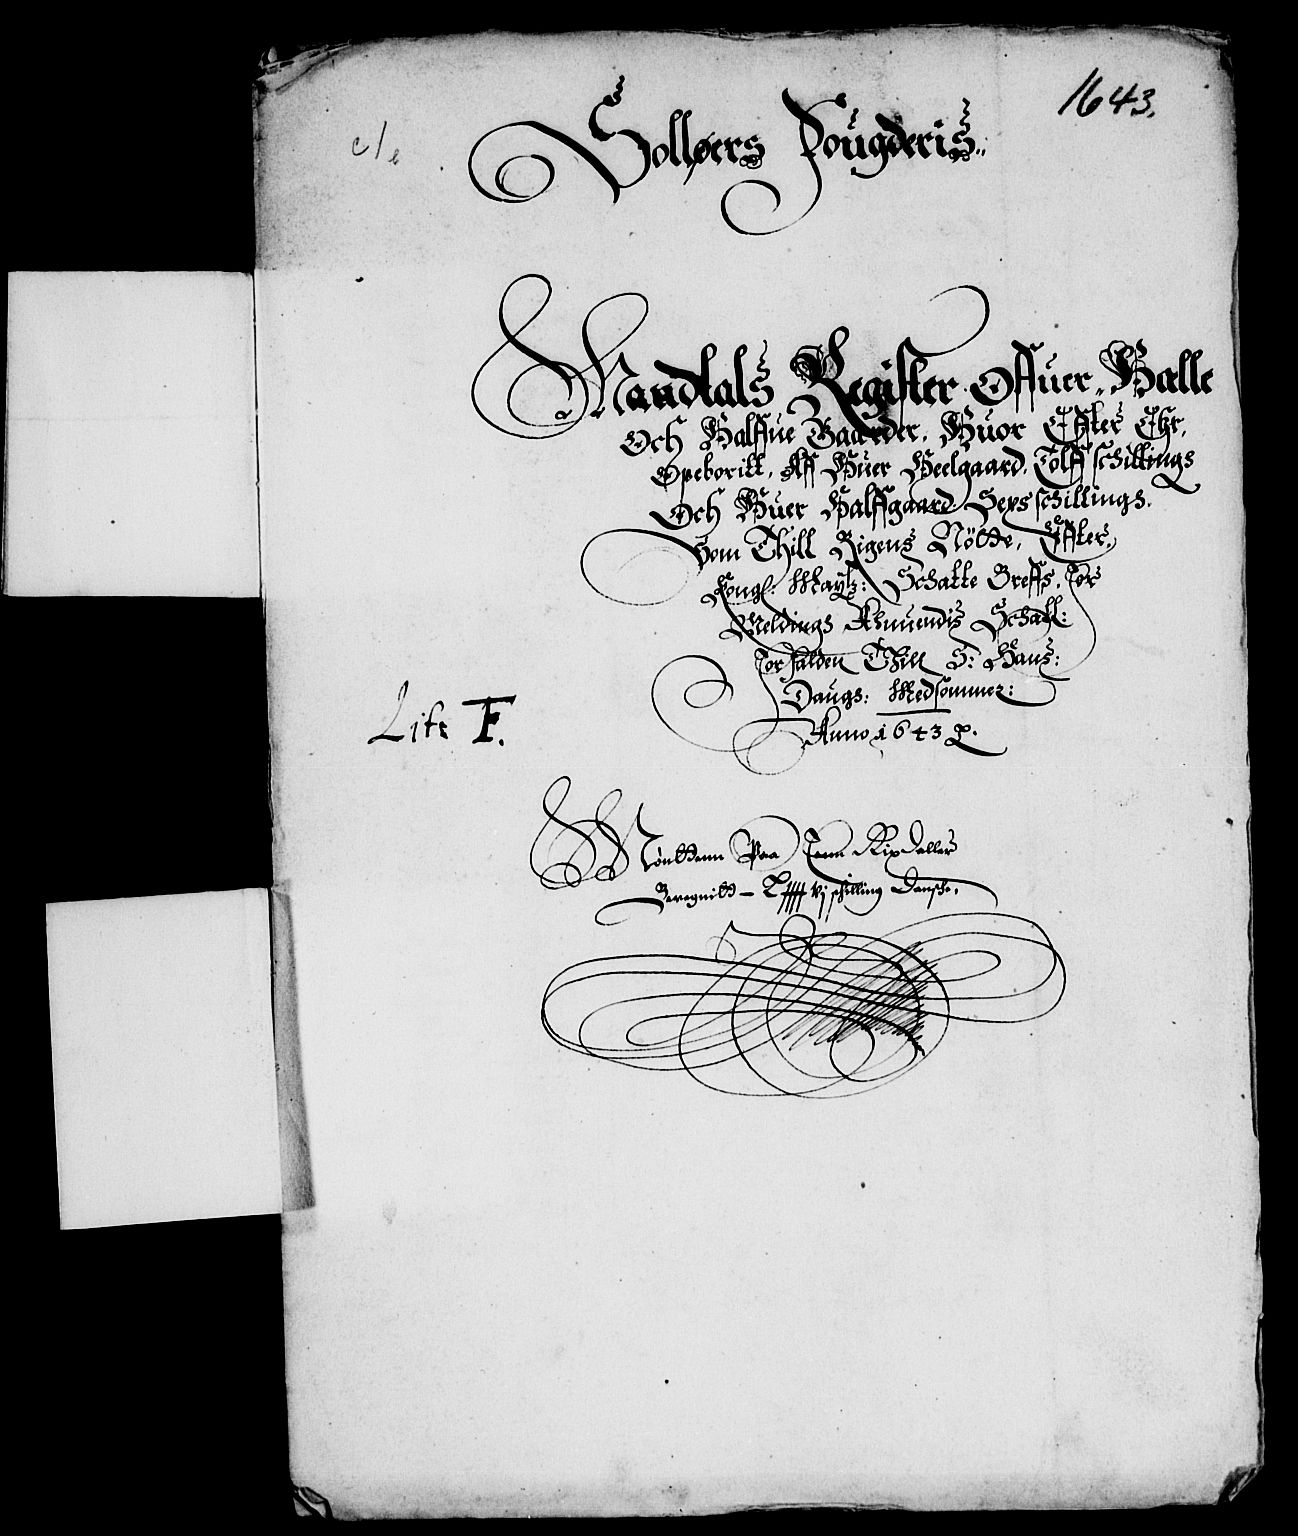 1643.
Solløers Fougderis..
Mandtals Register Offuer Halle
Och Halffue Gaarder, Huor Effter Ehr,
Opeboritt, Aff Huer Heelgaard, Tolff schillings
Och Huer Halffgaard Sexs schillings.
Som Thill Rigens Nötte, Effter,
Kongl: Maytz: Schatte Breffs, For
Meldings Anuendis Schatt:
Forfalden Thill S: Hans:
Daugs: Medsommer:
Anno 1643
Litr F.
Mönttenn Paa Rixdaller
Beregnitt schilling Dansche.